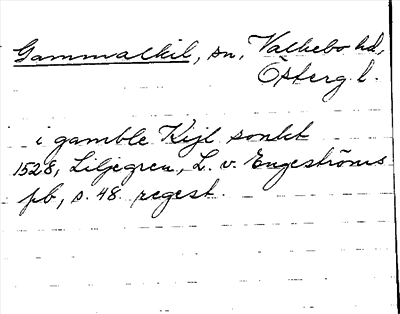 Gammalkil, sn, Valkebo hd,
Österg l.
i gamble Kijl soukt
1528, Liljegren, L. v. Engeströms
pb, s. 48 regest.